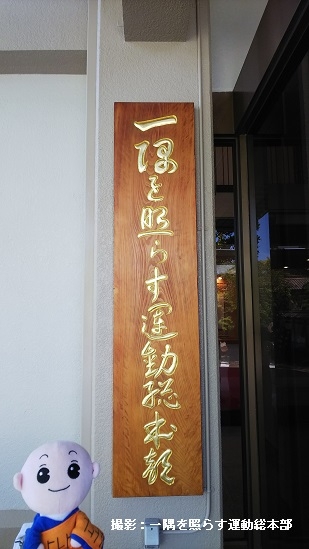 一隅を照らす運動総本部
撮影：一隅を照らす運動総本部